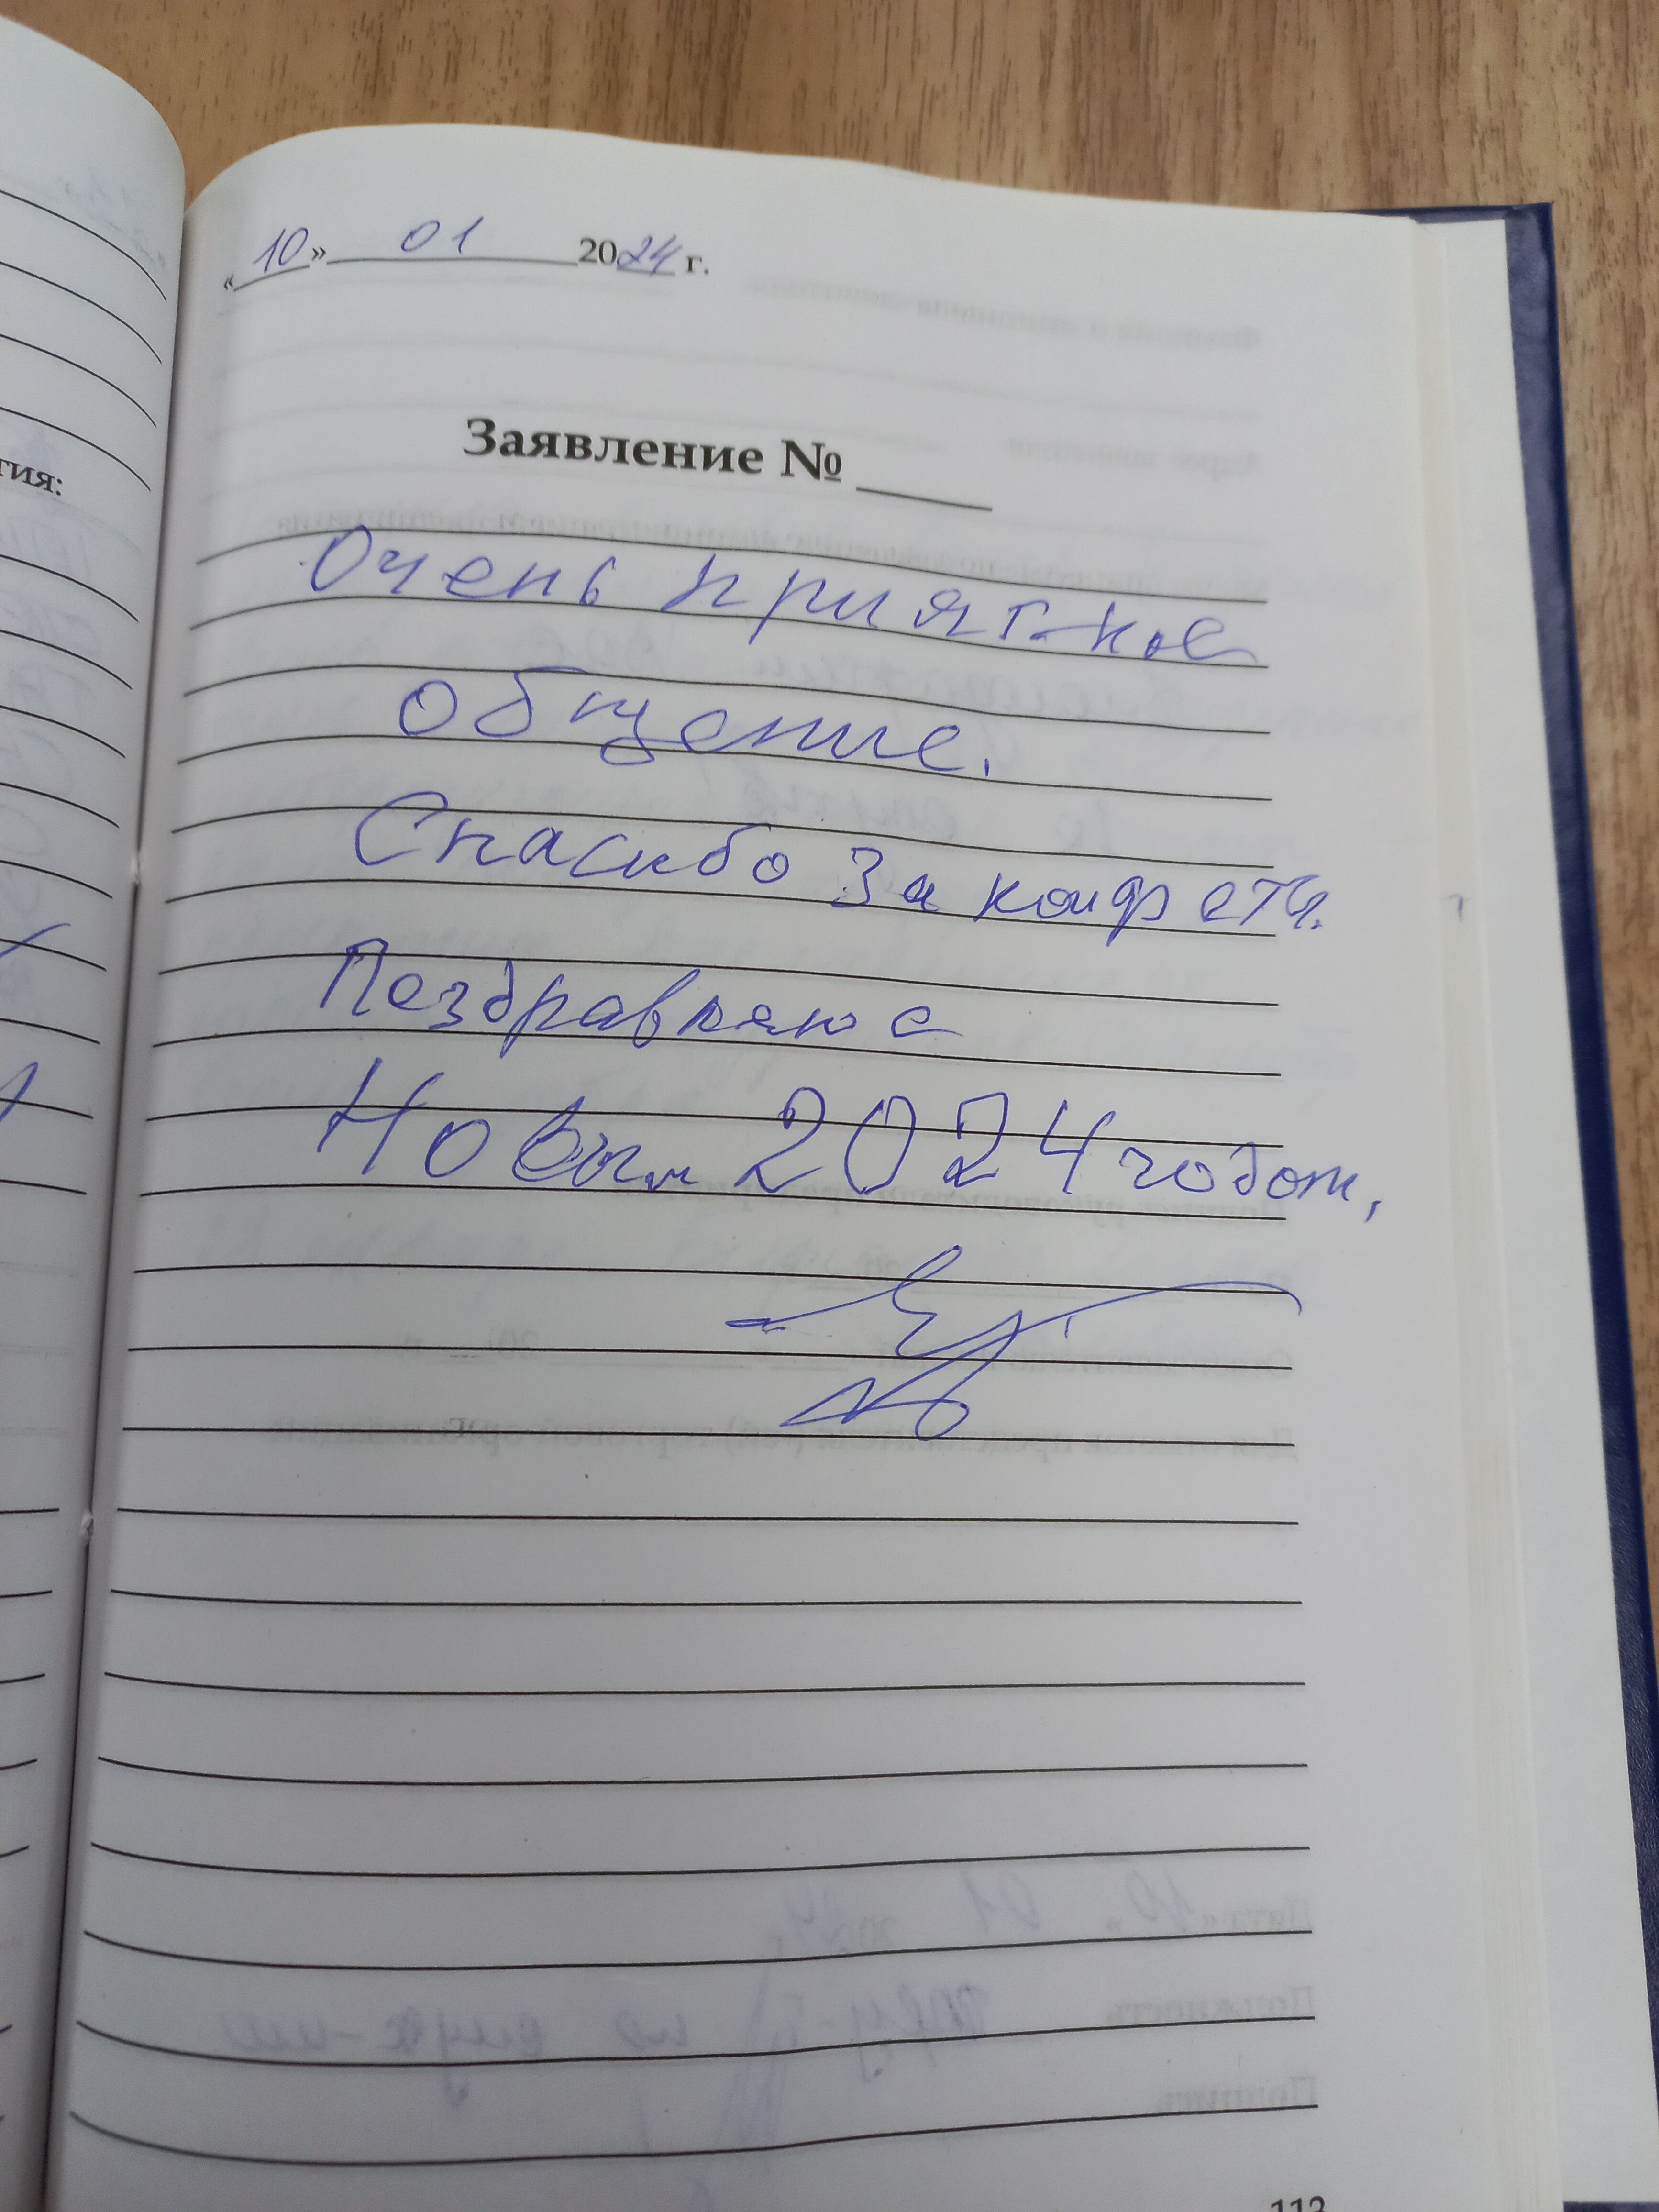 «10» 01 2024 г.
Заявление №
тия:
Очень приятное
общение.
Спасибо за конфеты.
Поздравляю с
Новым 2024 годом,
113